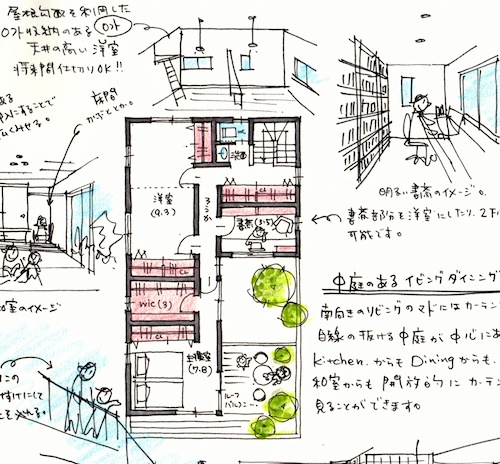 屋根勾配を利用した
ロフト収納のある
天井の高い洋室
将来間仕切りOK!!
洗面
洋室
(9.3)
ろうか
書斎(3.5)
CL
WIC(3)
CL
主寝室
(7.8)
ルーフ
バルコニー
明るい書斎のイメージ。
書斎部分を洋室にしたり、2F
可能です。
中庭のあるリビングダイニング
南向きのリビングのマドにはカーテン
目線の抜ける中庭が中心にあ
Kitchen.からもDiningからも.
和室からも開放的にカーテン
見ることができます。
和室のイメージ